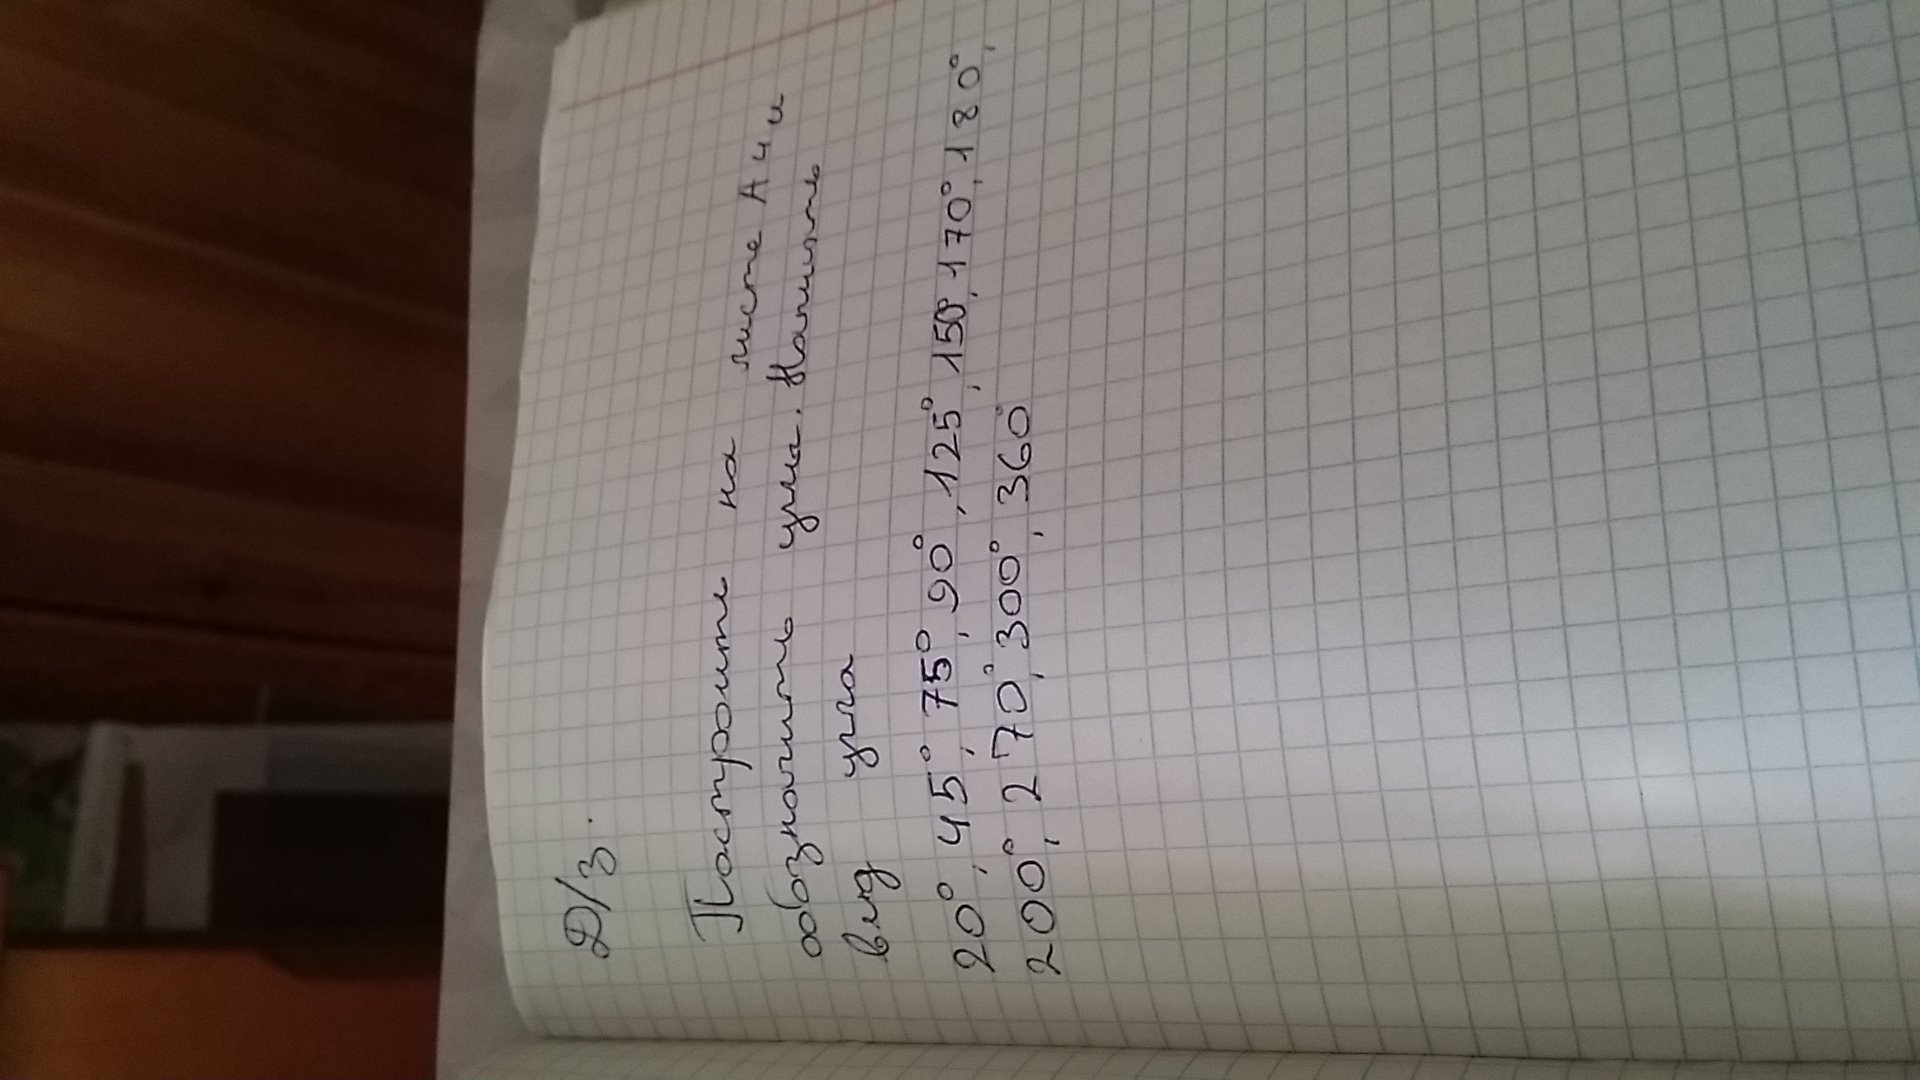 Д/З.
Построить на листе А4 и
обозначить углы. Написать
вид угла
20°, 45°, 75°, 90°, 125°, 150°, 170°, 180°,
200°, 270°, 300°, 360°